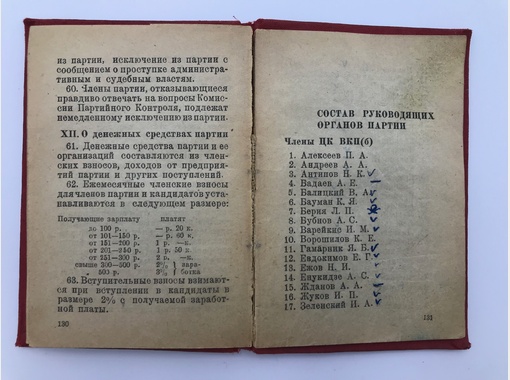 из партии, исключение из партии с
сообщением о проступке административ-
ным и судебным властям.
60. Члены партии, отказывающиеся
правдиво отвечать на вопросы Комис-
сии Партийного Контроля, подлежат
немедленному исключению из партии.
XII. О денежных средствах партии
61. Денежные средства партии и ее
организаций составляются из член-
ских взносов, доходов от предприя-
тий партии и других поступлений.
62. Ежемесячные членские взносы
для членов партии и кандидатов уста-
навливаются в следующем размере:
Получающие зарплату платят
до 100 р. — р. 20 к.
от 101—150 р. — р. 60 к.
от 151—200 р. 1 р. —к.
от 201—250 р. 1 р. 50 к.
от 251—300 р. 2 р. —к.
свыше 300—500 р. 2% } зара-
„ 500 р. 3% } ботка
63. Вступительные взносы взимают-
ся при вступлении в кандидаты в
размере 2% с получаемой заработ-
ной платы.
130
СОСТАВ РУКОВОДЯЩИХ
ОРГАНОВ ПАРТИИ
Члены ЦК ВКП(б)
1. Алексеев П. А.
2. Андреев А. А.
3. Антипов Н. К.
4. Бадаев А. Е.
5. Балицкий В. А.
6. Бауман К. Я.
7. Берия Л. П.
8. Бубнов А. С.
9. Варейкис И. М.
10. Ворошилов К. Е.
11. Гамарник Я. Б.
12. Евдокимов Е. Г.
13. Ежов Н. И.
14. Енукидзе А. С.
15. Жданов А. А.
16. Жуков И. П.
17. Зеленский И. А.
131